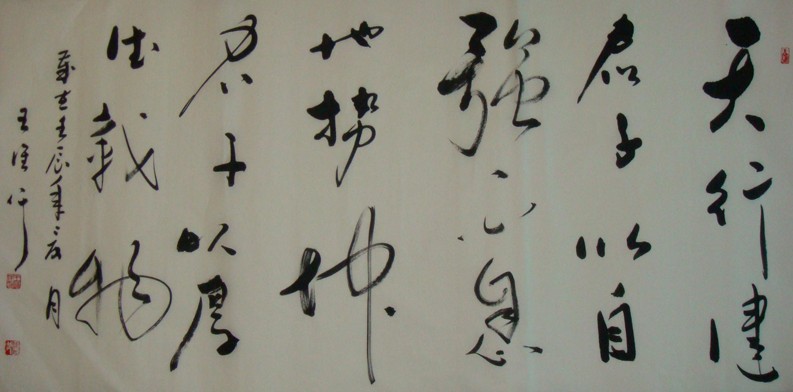 天行健
君子以自
强不息
地势坤
君子以厚
德载物
岁在壬辰年二月